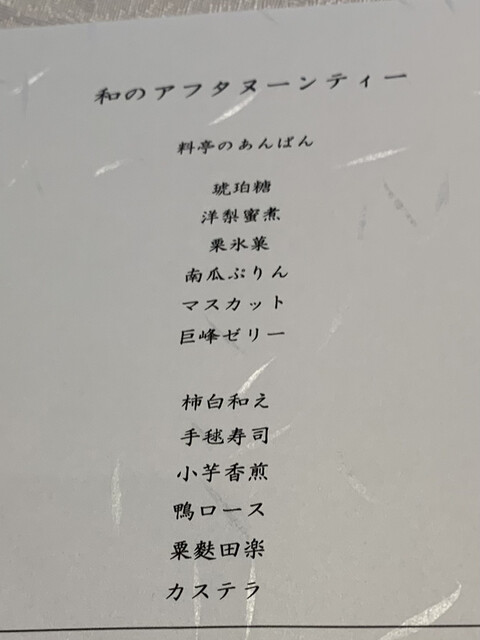 和のアフタヌーンティー
料亭のあんぱん
琥珀糖
洋梨蜜煮
栗氷菓
南瓜ぷりん
マスカット
巨峰ゼリー
柿白和え
手毬寿司
小芋香煎
鴨ロース
粟麩田楽
カステラ